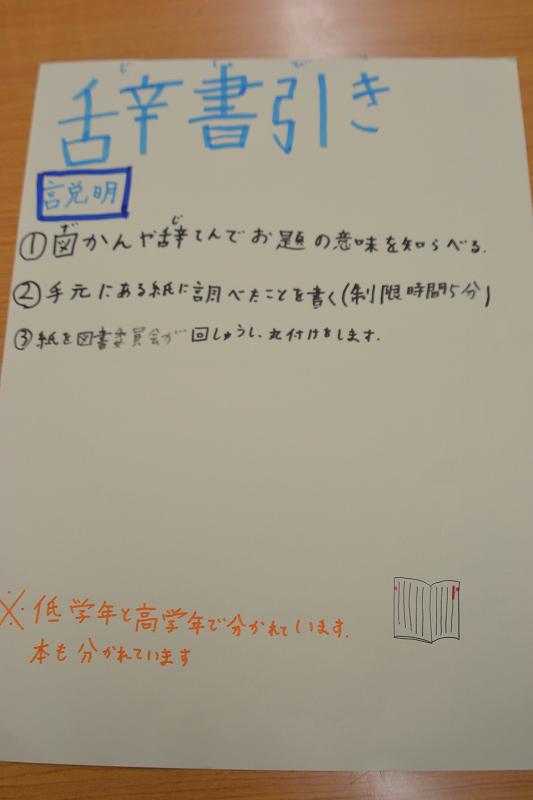 辞書引き
説明
①図かんや辞てんでお題の意味を知らべる.
②手元にある紙に調べたことを書く(制限時間5分)
③紙を図書委員会が回しゅうし、丸付けをします.
※低学年と高学年で分かれています.
本も分かれています